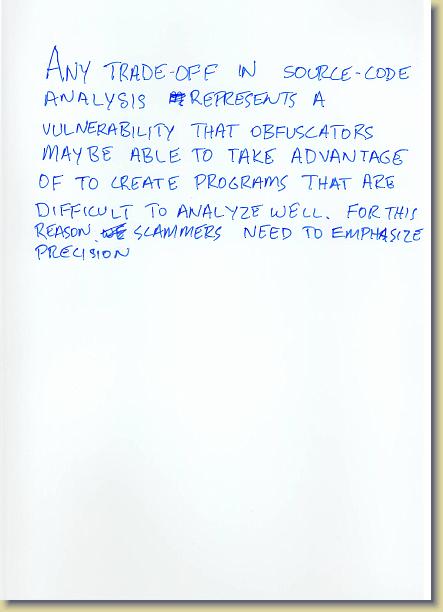 ANY TRADE-OFF IN SOURCE-CODE
ANALYSIS REPRESENTS A
VULNERABILITY THAT OBFUSCATORS
MAYBE ABLE TO TAKE ADVANTAGE
OF TO CREATE PROGRAMS THAT ARE
DIFFICULT TO ANALYZE WELL. FOR THIS
REASON, SLAMMERS NEED TO EMPHASIZE
PRECISION